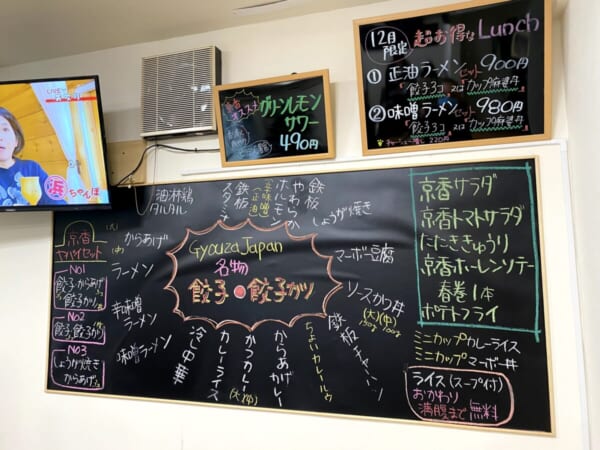 12月
限定
超お得なLunch
① 正油ラーメンセット 900円
『餃子3コ』又は『カップ麻婆丼』
② 味噌ラーメンセット 980円
『餃子3コ』又は『カップ麻婆丼』
220円
グリーンレモン
サワー
490円
浜ちゃんぽ
京香
ヤバイセット
No1
餃子からあげ
餃子カツ
No2
餃子餃子カツ
No3
しょうが焼き
からあげ
油淋鶏
タルタル
鉄板
スタミナ
ホルモン
辛味噌
正油
鉄板
やわらか
しょうが焼き
(大)
からあげ
ラーメン
辛味噌
ラーメン
味噌ラーメン
Gyouza Japan
名物
餃子●餃子カツ
マーボー豆腐
ソースカツ丼
(大)(中)
鉄板チャーハン
冷し中華
カレーライス
かつカレー
(大)(中)
からあげカレー
ちょいカレールゥ
京香サラダ
京香トマトサラダ
にんにきゅうり
京香ホーレンソテー
春巻1本
ポテトフライ
ミニカップカレーライス
ミニカップマーボー丼
ライス(スープ付)
おかわり
満腹まで無料